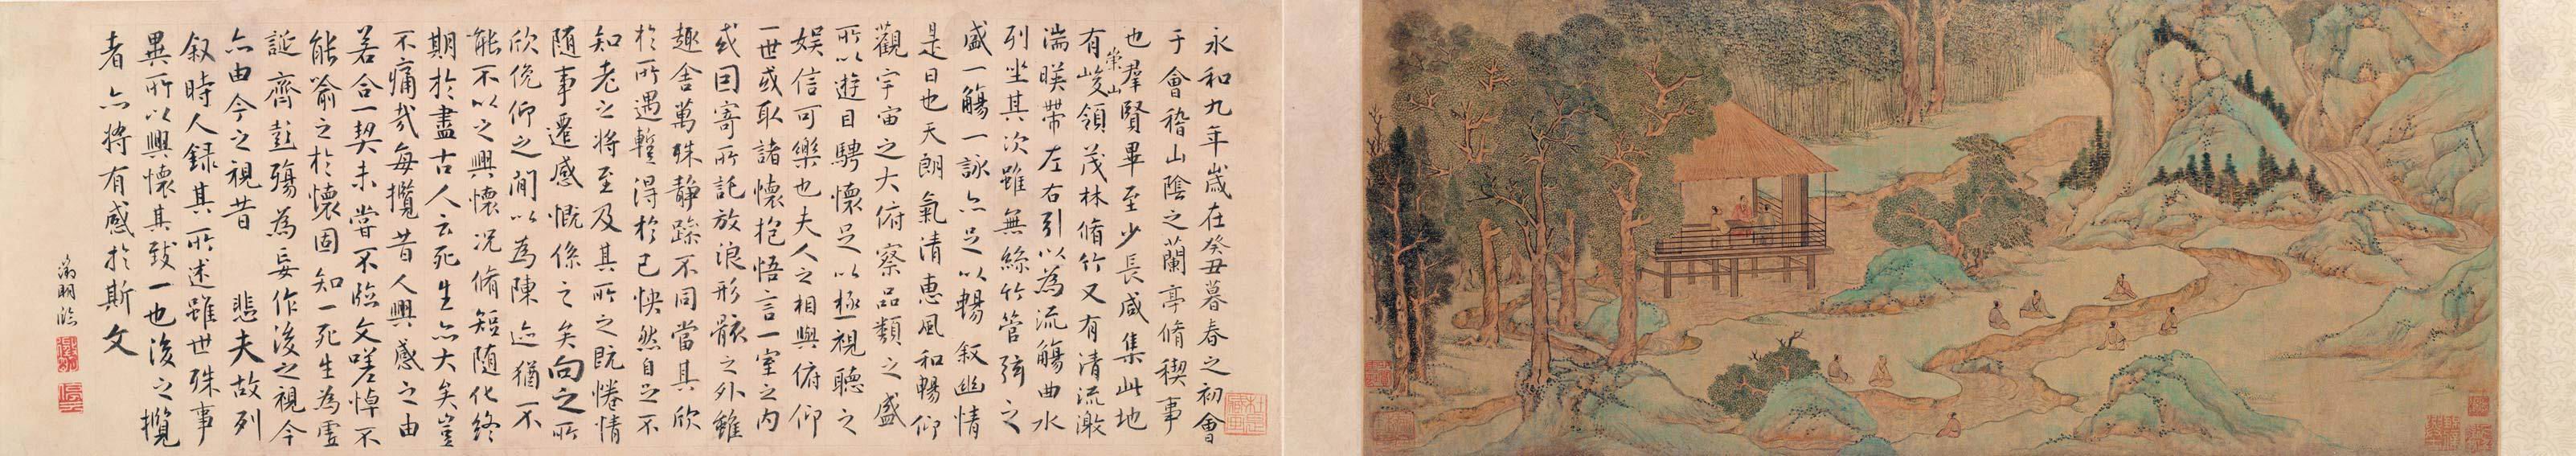 永和九年歲在癸丑暮春之初會
于會稽山陰之蘭亭脩稧事
也羣賢畢至少長咸集此地
有崇山峻領茂林脩竹又有清流激
湍暎帶左右引以為流觴曲水
列坐其次雖無絲竹管弦之
盛一觴一詠亦足以暢敘幽情
是日也天朗氣清惠風和暢仰
觀宇宙之大俯察品類之盛
所以遊目騁懷足以極視聽之
娛信可樂也夫人之相與俯仰
一世或取諸懷抱悟言一室之內
或因寄所託放浪形骸之外雖
趣舍萬殊靜躁不同當其欣
於所遇蹔得於己怏然自足不
知老之將至及其所之既惓情
隨事遷感慨係之矣向之所
欣俛仰之間以為陳迹猶不
能不以之興懷況脩短隨化終
期於盡古人云死生亦大矣豈
不痛哉每攬昔人興感之由
若合一契未嘗不臨文嗟悼不
能喻之於懷固知一死生為虛
誕齊彭殤為妄作後之視今
亦由今之視昔 悲夫故列
敘時人錄其所述雖世殊事
異所以興懷其致一也後之攬
者亦將有感於斯文
徵明臨